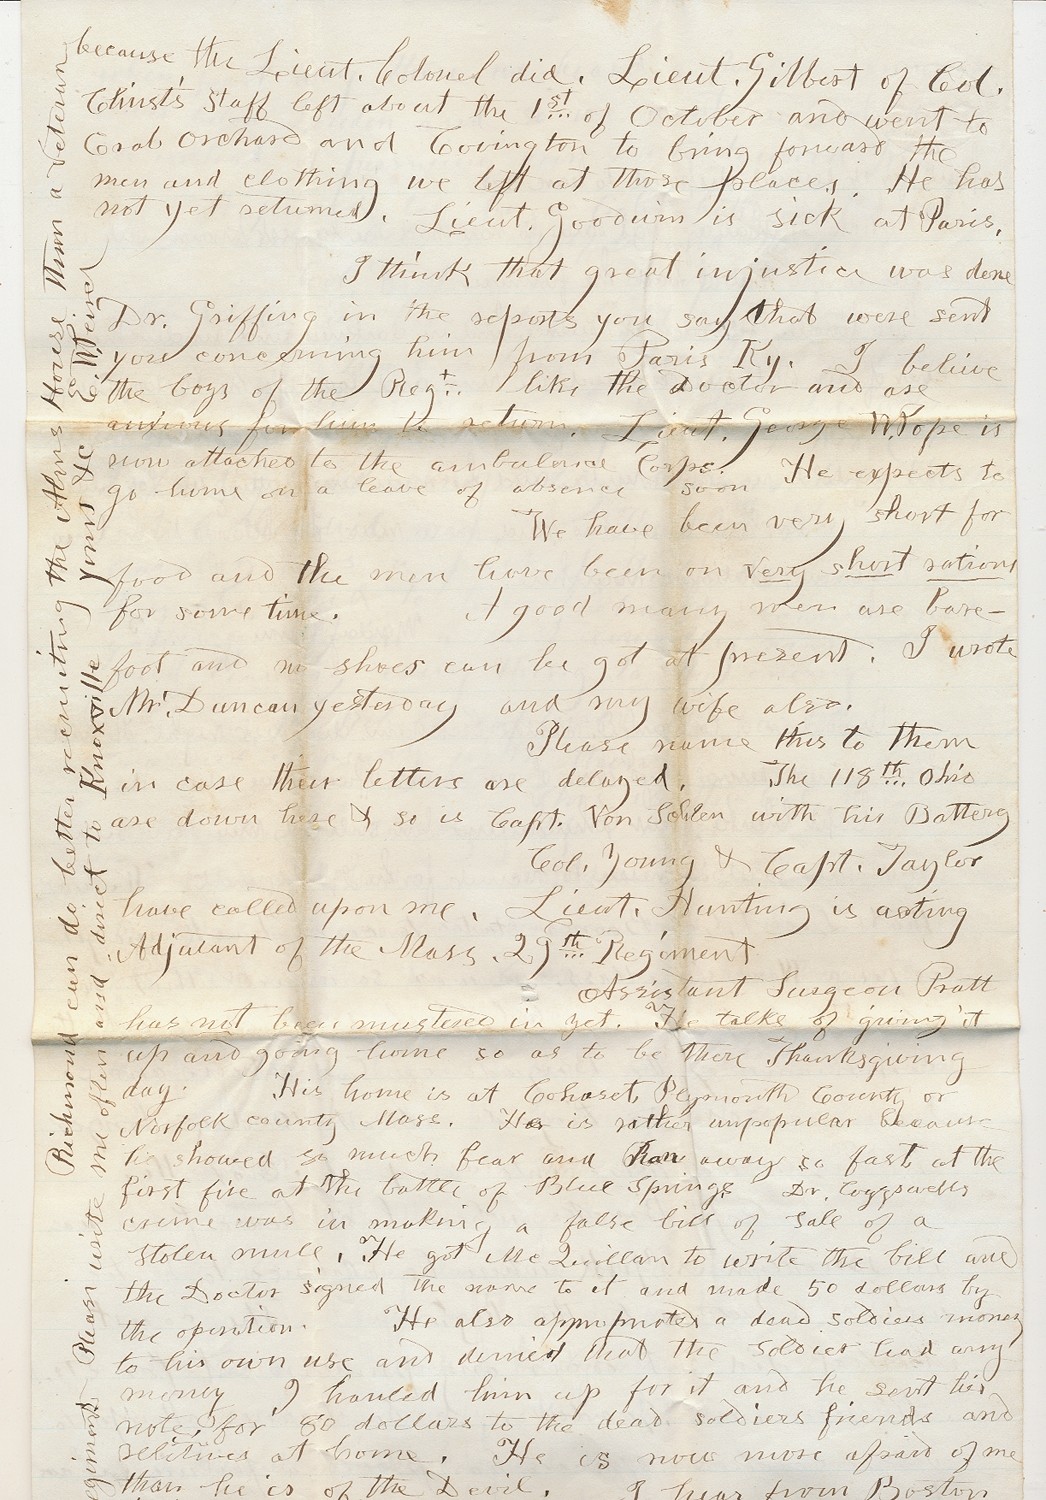 because the Lieut. Colonel did. Lieut. Gilbert of Col.
Christ's Staff left about the 1st of October and went to
Crab Orchard and Covington to bring forward the
men and clothing we left at those places. He has
not yet returned. Lieut. Goodwin is sick at Paris.
I think that great injustice was done
Dr. Griffing in the reports you say that were sent
you concerning him from Paris Ky. I believe
the boys of the Regt. like the Doctor and are
anxious for him to return. Lieut. George W. Pope is
now attached to the ambulance Corps. He expects to
go home on a leave of absence soon
We have been very short for
food and the men have been on very short rations
for some time. A good many men are bare-
foot and no shoes can be got at present. I wrote
Mr. Duncan yesterday and my wife also.
Please name this to them
in case their letters are delayed. The 118th Ohio
are down here & so is Capt. Von Sehlen with his Battery
Col. Young & Capt. Taylor
have called upon me. Lieut. Hunting is acting
Adjutant of the Mass. 29th Regiment
Assistant Surgeon Pratt
has not been mustered in yet. He talks of giving it
up and going home so as to be there Thanksgiving
day. His home is at Cohaset, Plymouth County or
Norfolk county Mass. He is rather unpopular because
he showed so much fear and Ran away so fast at the
first fire at the battle of Blue Springs Dr. Coggswells
crime was in making a false bill of sale of a
stolen mule. He got McQuillan to write the bill and
the Doctor signed the name to it and made 50 dollars by
the operation. He also appropriated a dead soldiers money
to his own use and denied that the soldier had any
money I hauled him up for it and he sent his
note, for 80 dollars to the dead soldiers friends and
relitives at home. He is now more afraid of me
than he is of the Devil. I hear from Boston
Richmond can do better recruiting the Alms House than a veteran
regiment. Please write me often and direct to Knoxville Yours &c